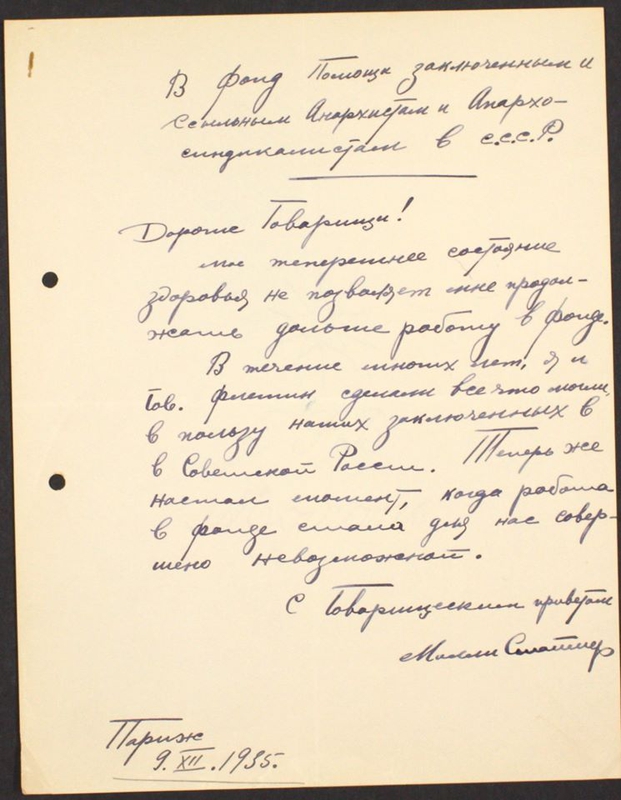 В фонд Помощи заключенным и
ссыльным Анархистам и Анархо-
синдикалистам в С.С.С.Р.
Дорогие Товарищи!
мое теперешнее состояние
здоровья не позволяет мне продол-
жать дальше работу в фонде.
В течение многих лет, я и
Тов. Флешин сделали все что могли,
в пользу наших заключенных в
в Советской России. Теперь же
настал момент, когда работа
в фонде стала для нас совер-
шено невозможной.
С Товарищеским приветом
Молли Штаймер
Париж
9. XII. 1935.